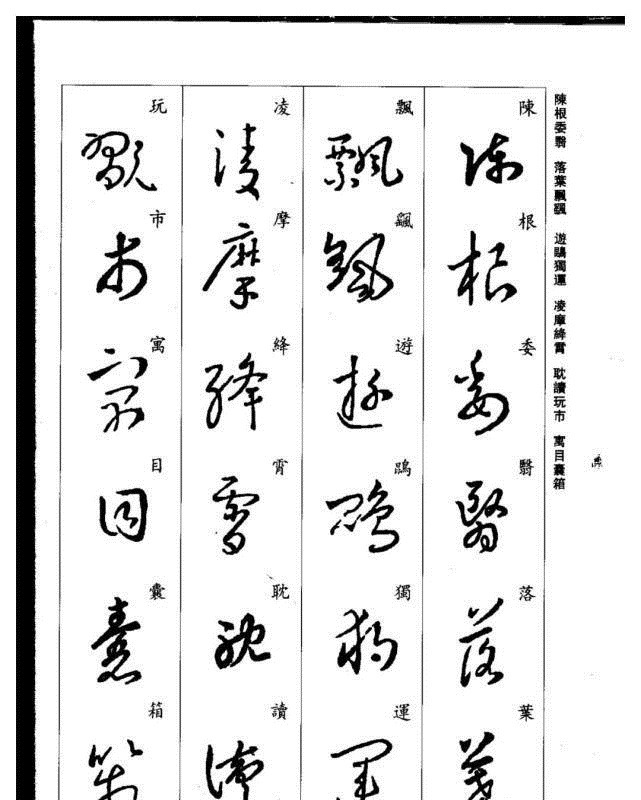 陳根委翳 落葉飄颻 遊鵾獨運 凌摩絳霄 耽讀玩市 寓目囊箱
陳根委翳落葉
飄颻遊鵾獨運
凌摩絳霄耽讀
玩市寓目囊箱